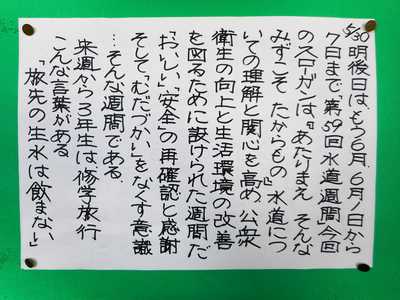 5/30
明後日は、もう6月、6月1日から
7日まで、第59回水道週間、今回
のスローガンは、『あたりまえ そんな
みずこそ たからもの』水道につ
いての理解と関心を高め、公衆
衛生の向上と生活環境の改善
を図るために設けられた週間だ
「おいしい」「安全」の再確認と感謝
そして、「むだづかい」をなくす意識
…そんな週間である。
来週から3年生は、修学旅行
こんな言葉がある
「旅先の生水は飲まない」